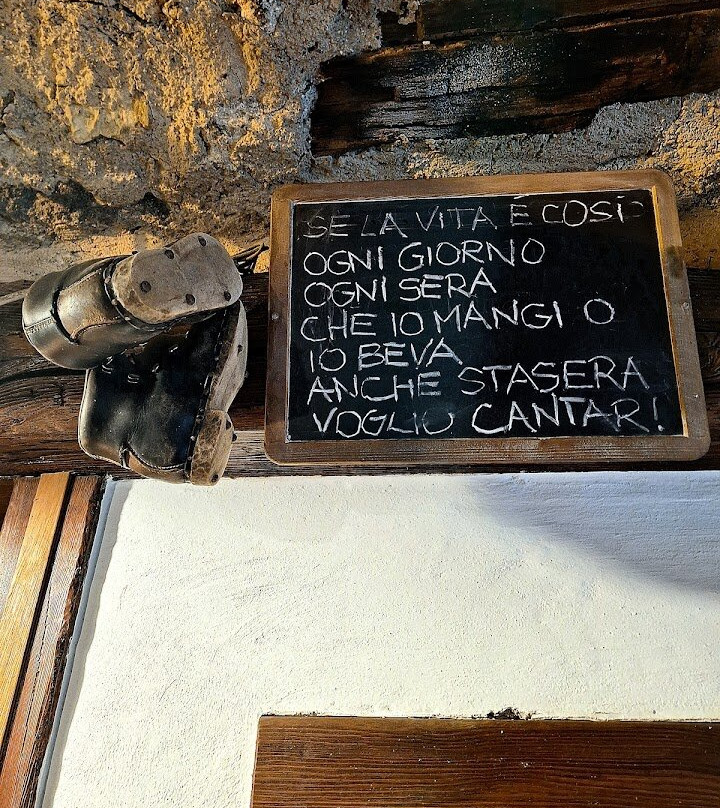 SE LA VITA È COSÌ
OGNI GIORNO
OGNI SERA
CHE IO MANGI O
IO BEVA
ANCHE STASERA
VOGLIO CANTAR!